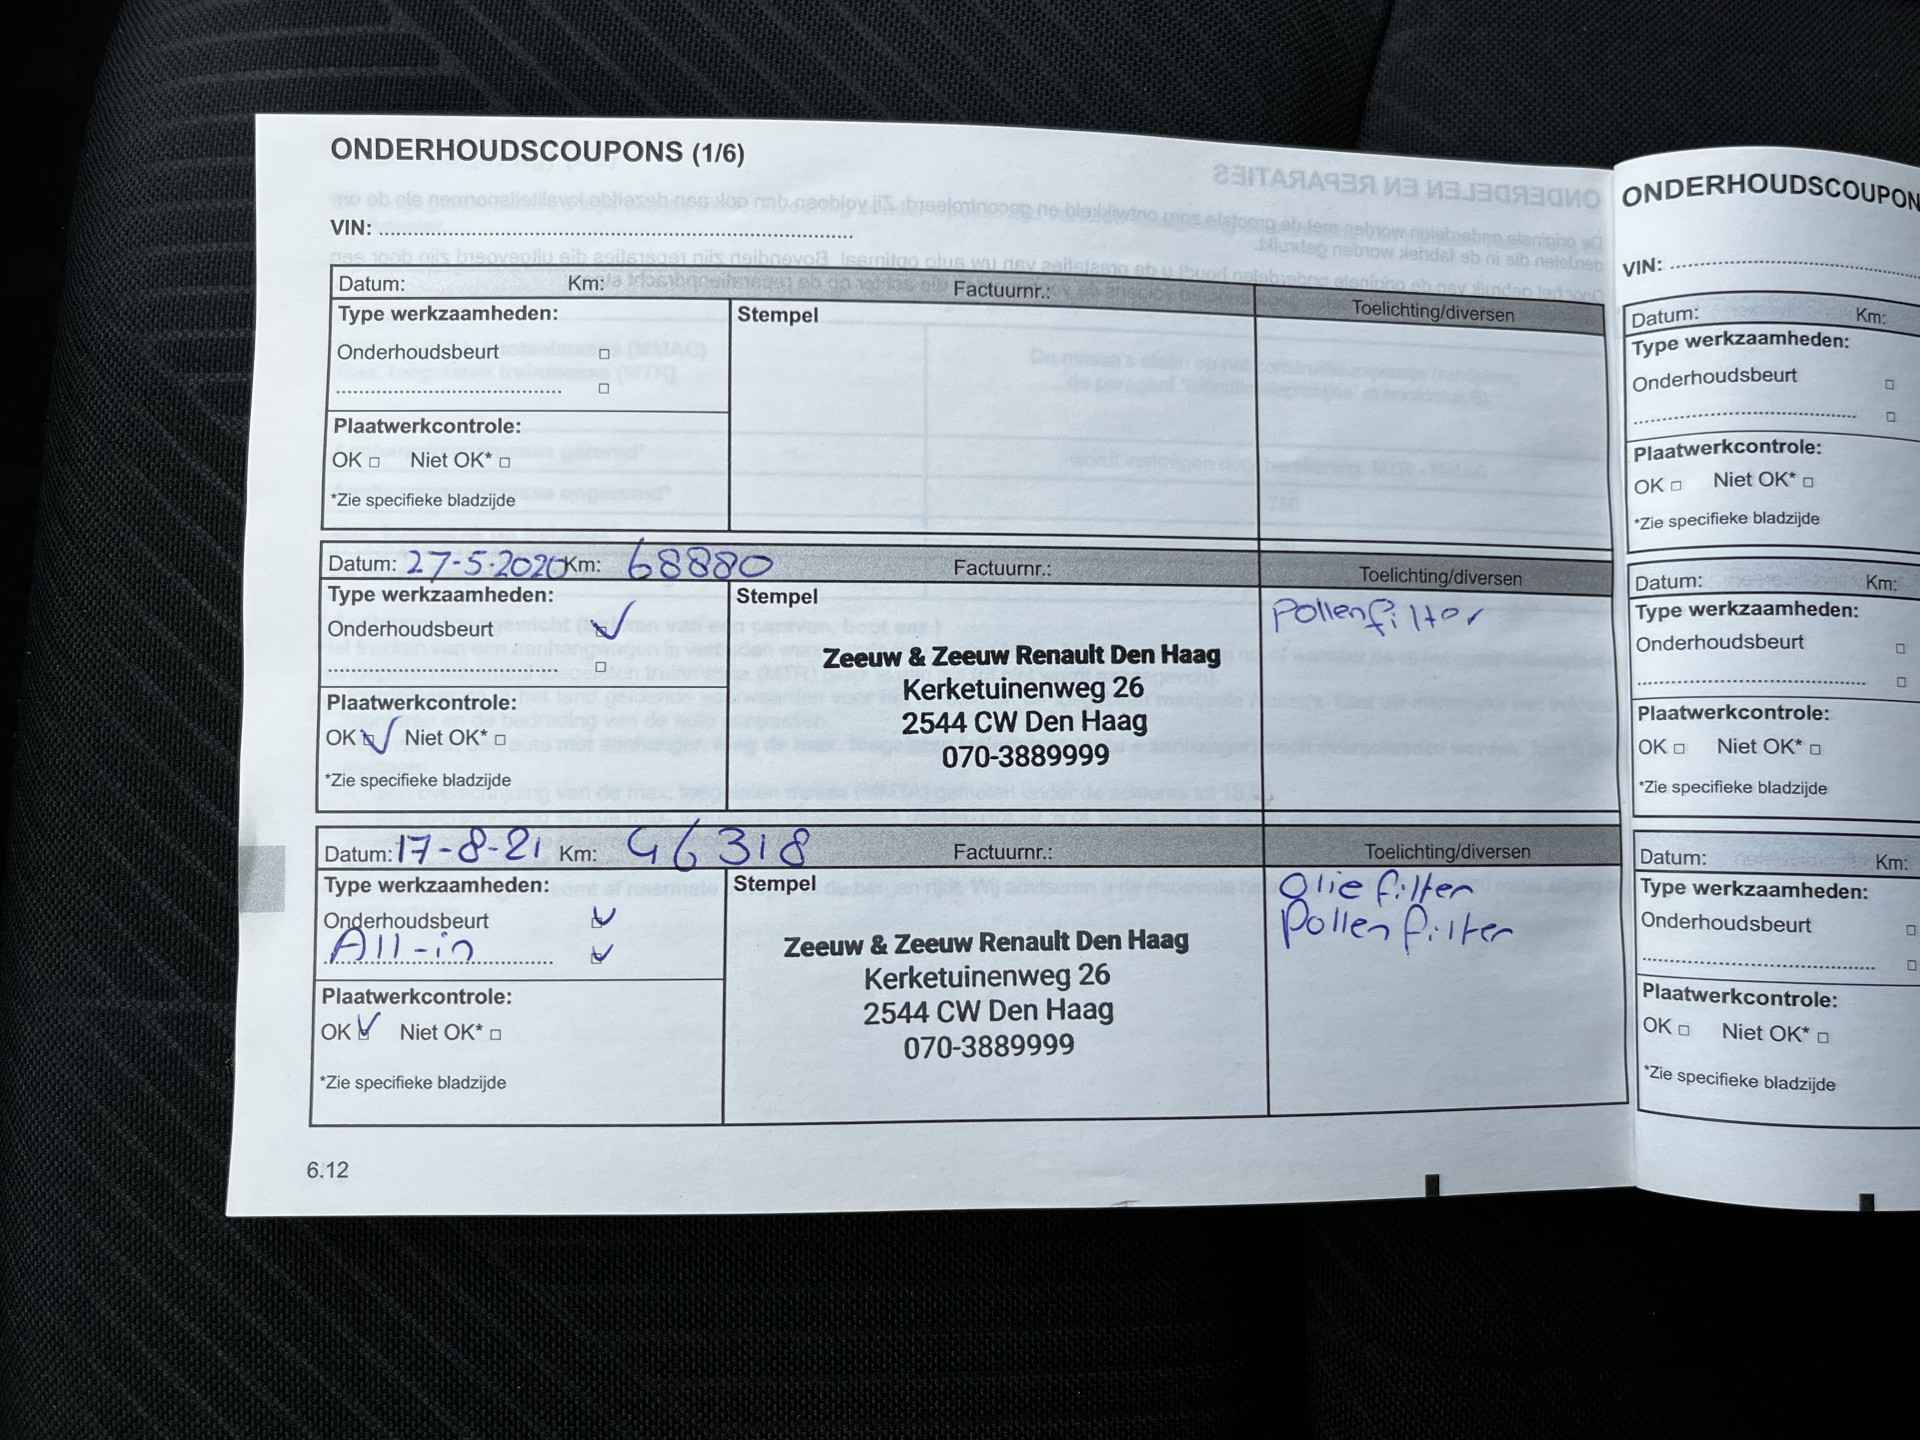 ONDERHOUDSCOUPONS (1/6)
VIN:
Datum: Km: Factuurnr.: Toelichting/diversen
Type werkzaamheden: Stempel
Onderhoudsbeurt
Plaatwerkcontrole:
OK Niet OK*
*Zie specifieke bladzijde
Datum: 27-5-2020 Km: 68880 Factuurnr.: Toelichting/diversen
Type werkzaamheden: Stempel
Pollenfilter
Onderhoudsbeurt
Zeeuw & Zeeuw Renault Den Haag
Kerketuinenweg 26
2544 CW Den Haag
070-3889999
Plaatwerkcontrole:
OK Niet OK*
*Zie specifieke bladzijde
Datum: 17-8-21 Km: 96318 Factuurnr.: Toelichting/diversen
Type werkzaamheden: Stempel
Oliefilter
Pollenfilter
Onderhoudsbeurt
All-in
Zeeuw & Zeeuw Renault Den Haag
Kerketuinenweg 26
2544 CW Den Haag
070-3889999
Plaatwerkcontrole:
OK Niet OK*
*Zie specifieke bladzijde
6.12
ONDERHOUDSCOUPON
VIN:
Datum: Km:
Type werkzaamheden:
Onderhoudsbeurt
Plaatwerkcontrole:
OK Niet OK*
*Zie specifieke bladzijde
Datum: Km:
Type werkzaamheden:
Onderhoudsbeurt
Plaatwerkcontrole:
OK Niet OK*
*Zie specifieke bladzijde
Datum: Km:
Type werkzaamheden:
Onderhoudsbeurt
Plaatwerkcontrole:
OK Niet OK*
*Zie specifieke bladzijde